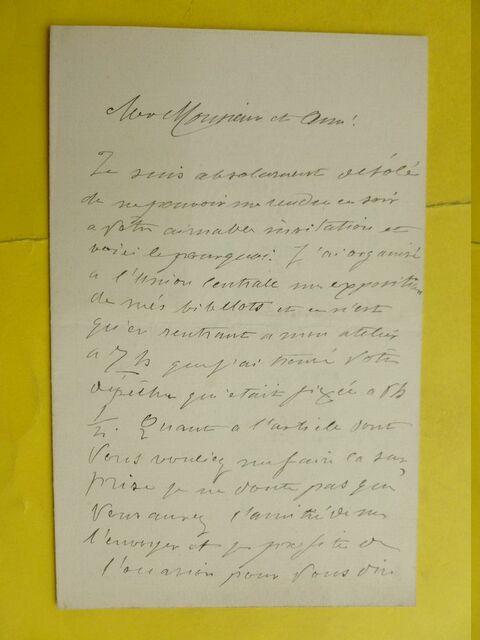 Cher Monsieur et ami!
Je suis absolument désolé
de ne pouvoir me rendre ce soir
a votre aimable invitation et
voici le pourquoi. J'ai organisé
a l'Union Centrale une exposition
de mes bibelots et ce n'est
qu'en rentrant a mon atelier
a 7 h que j'ai trouvé votre
dépêche qui était fixée a 6h
1/2. Quant a l'article dont
vous vouliez me faire la sur
prise je ne doute pas que
vous aurez l'amitié de me
l'envoyer et je profite de
l'occasion pour vous dire